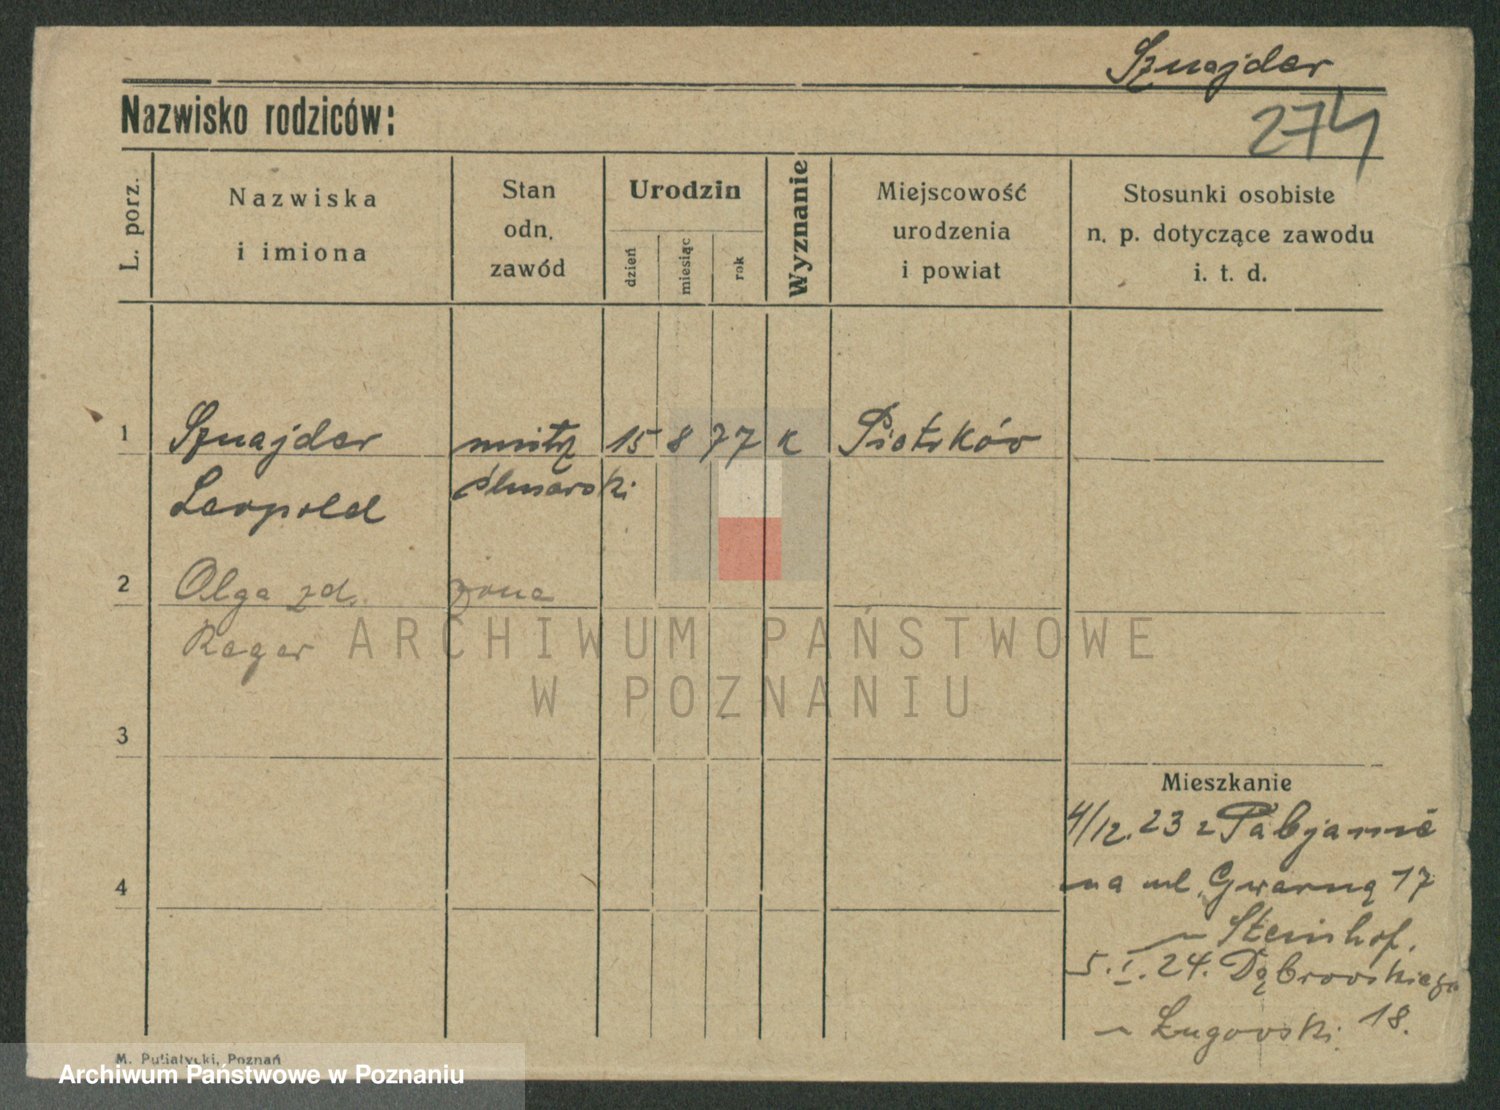 Sznajder
Nazwisko rodziców:
274
L. porz.
Nazwiska
i imiona
Stan
odn.
zawód
Urodzin
dzień
miesiąc
rok
Wyznanie
Miejscowość
urodzenia
i powiat
Stosunki osobiste
n. p. dotyczące zawodu
i. t. d.
1 Sznajder mistrz 15 8 77 k Piotrków
Leopold ślusarski
2 Olga zd. żona
Reger
ARCHIWUM PAŃSTWOWE
W POZNANIU
3
Mieszkanie
4/12. 23 z Pabjanic
4
na ul. Gwarną 17
Steinhof.
5. I. 24. Dąbrowskiego
Ługowski 18.
M. Putiatycki, Poznań
Archiwum Państwowe w Poznaniu